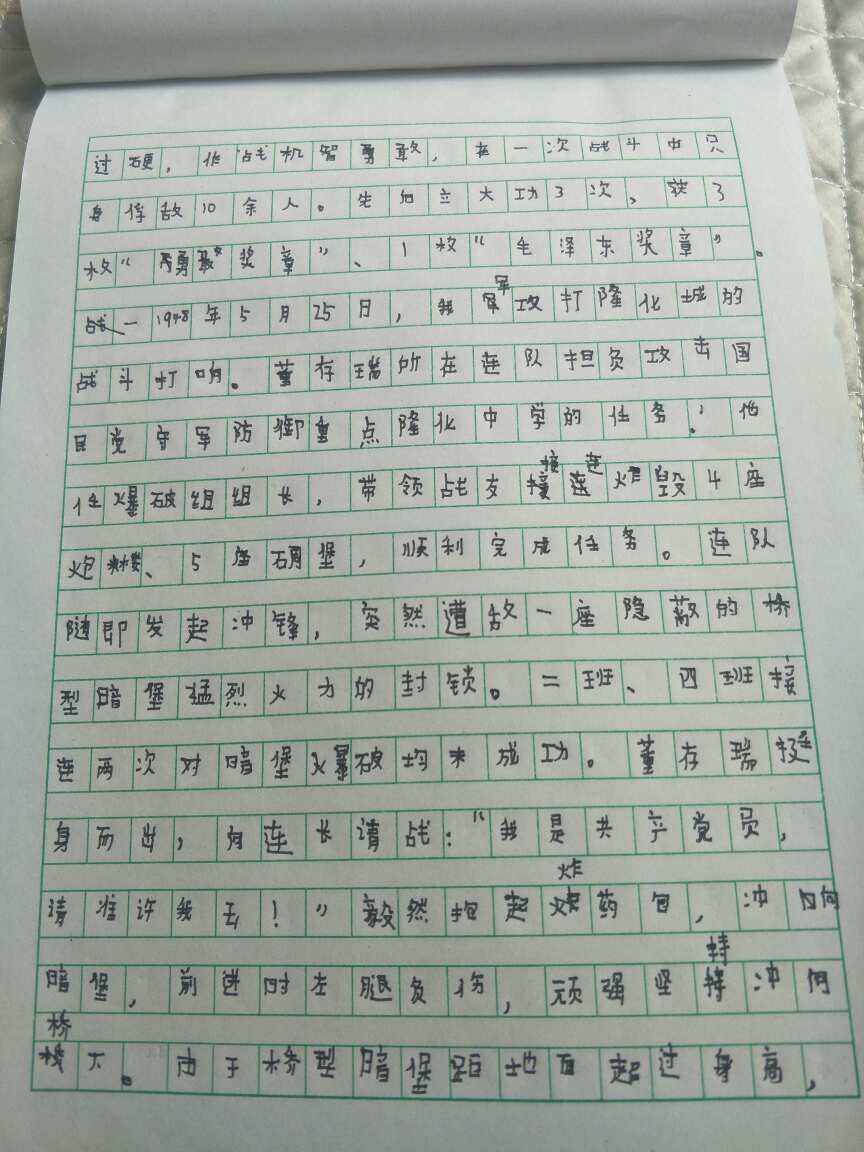 过硬，作战机智勇敢，在一次战斗中只
身俘敌10余人。先后立大功3次，获3
枚“勇敢奖章”、1枚“毛泽东奖章”。
1948年5月25日，我军攻打隆化城的
战斗打响。董存瑞所在连队担负攻击国
民党守军防御重点隆化中学的任务。他
任爆破组组长，带领战友接连炸毁4座
炮楼、5座碉堡，顺利完成任务。连队
随即发起冲锋，突然遭敌一座隐蔽的桥
型暗堡猛烈火力的封锁。二班、四班接
连两次对暗堡爆破均未成功。董存瑞挺
身而出，向连长请战：“我是共产党员，
请准许我去！”毅然抱起炸药包，冲向
暗堡，前进时左腿负伤，顽强坚持冲向
桥下。由于桥型暗堡距地面超过身高，